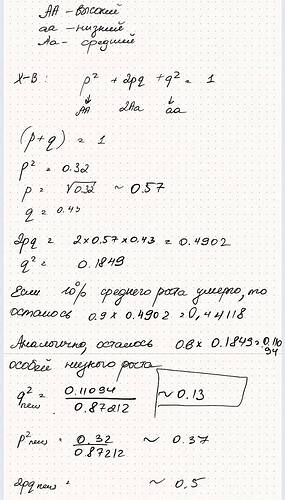 AA – высокий
aa – низкий
Aa – средний
X-B : p² + 2pq + q² = 1
AA 2Aa aa
(p+q) = 1
p² = 0.32
p = √0.32 ~ 0.57
q = 0.43
2pq = 2×0.57×0.43 = 0.4902
q² = 0.1849
Если 10% среднего роста умерло, то
осталось 0.9 × 0.4902 = 0,44118
Аналогично, осталось 0.6 × 0.1849 = 0.110
94
особей низкого роста
q² new = 0.11094 / 0.87212 ~ 0.13
p² new = 0.32 / 0.87212 ~ 0.37
2pq new = ~ 0.5